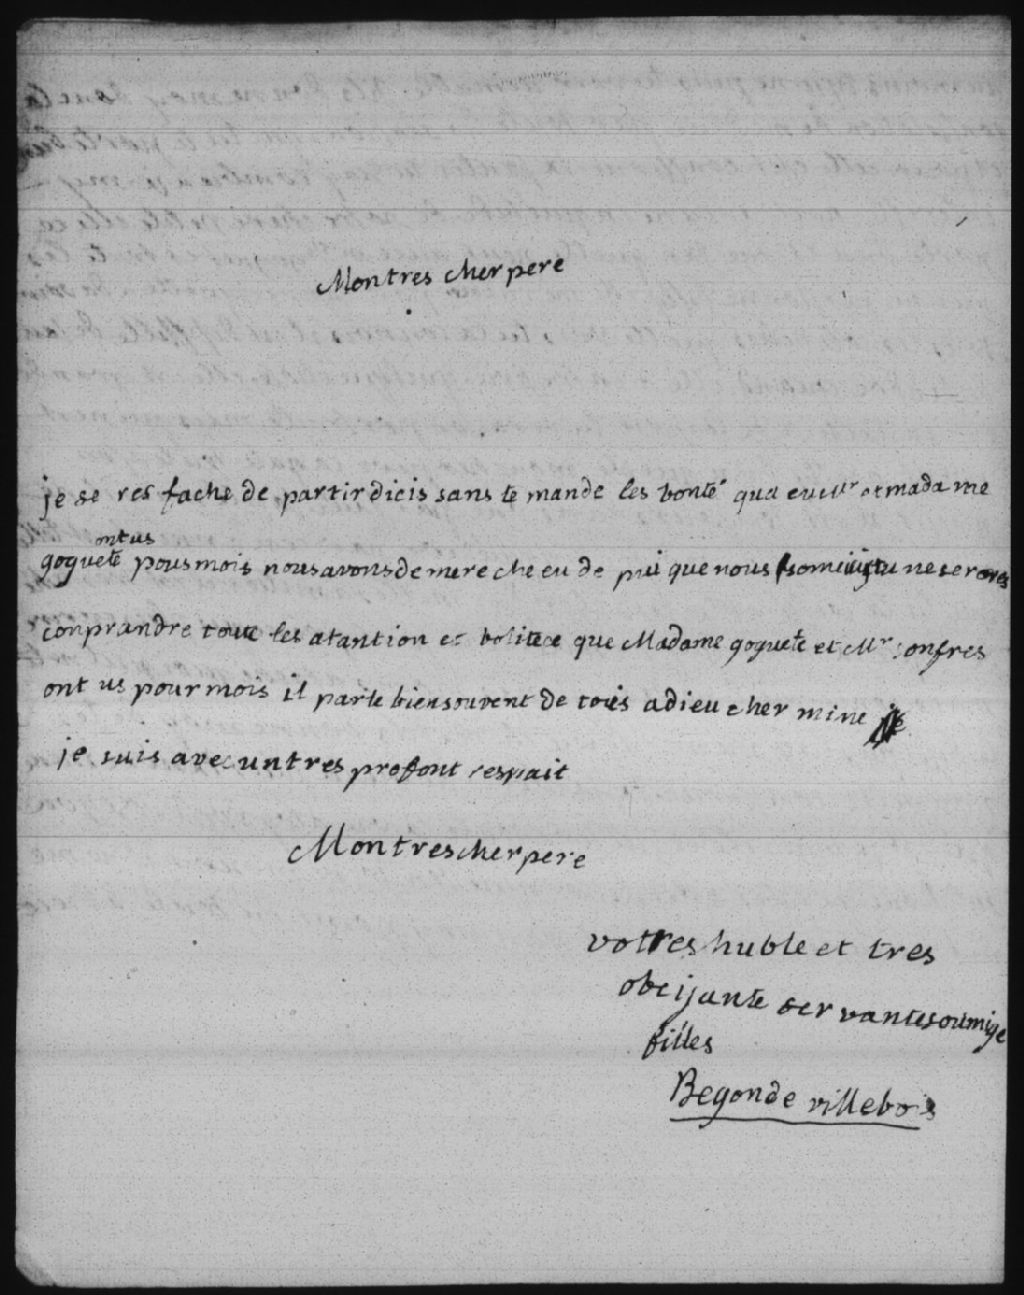 Montres cher pere
je se res fache de partir dicis sans te mande les bonte qua eu Mr et madame
ont us
goguete pous mois nous avons demere che eu de pui que nous somi tu ne serores
conprandre toute les atantion et bolitece que Madame goguete et Mr
ont us pour mois il parle bien souvent de tois adieu cher mine
je suis avec un tres profont respait
Montres cher pere
votres huble et tres
obeijante servante soumige
filles
Begonde villebois